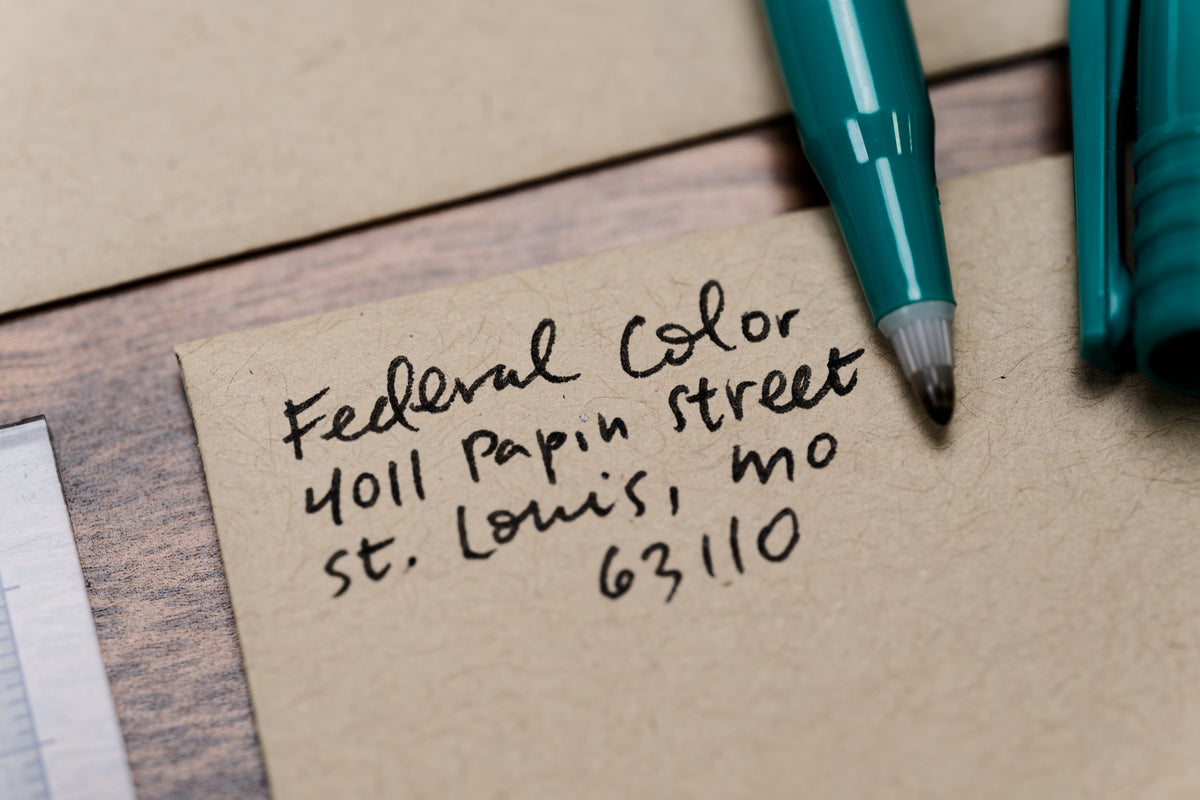 Federal Color
4011 Papin Street
St. Louis, MO
63110